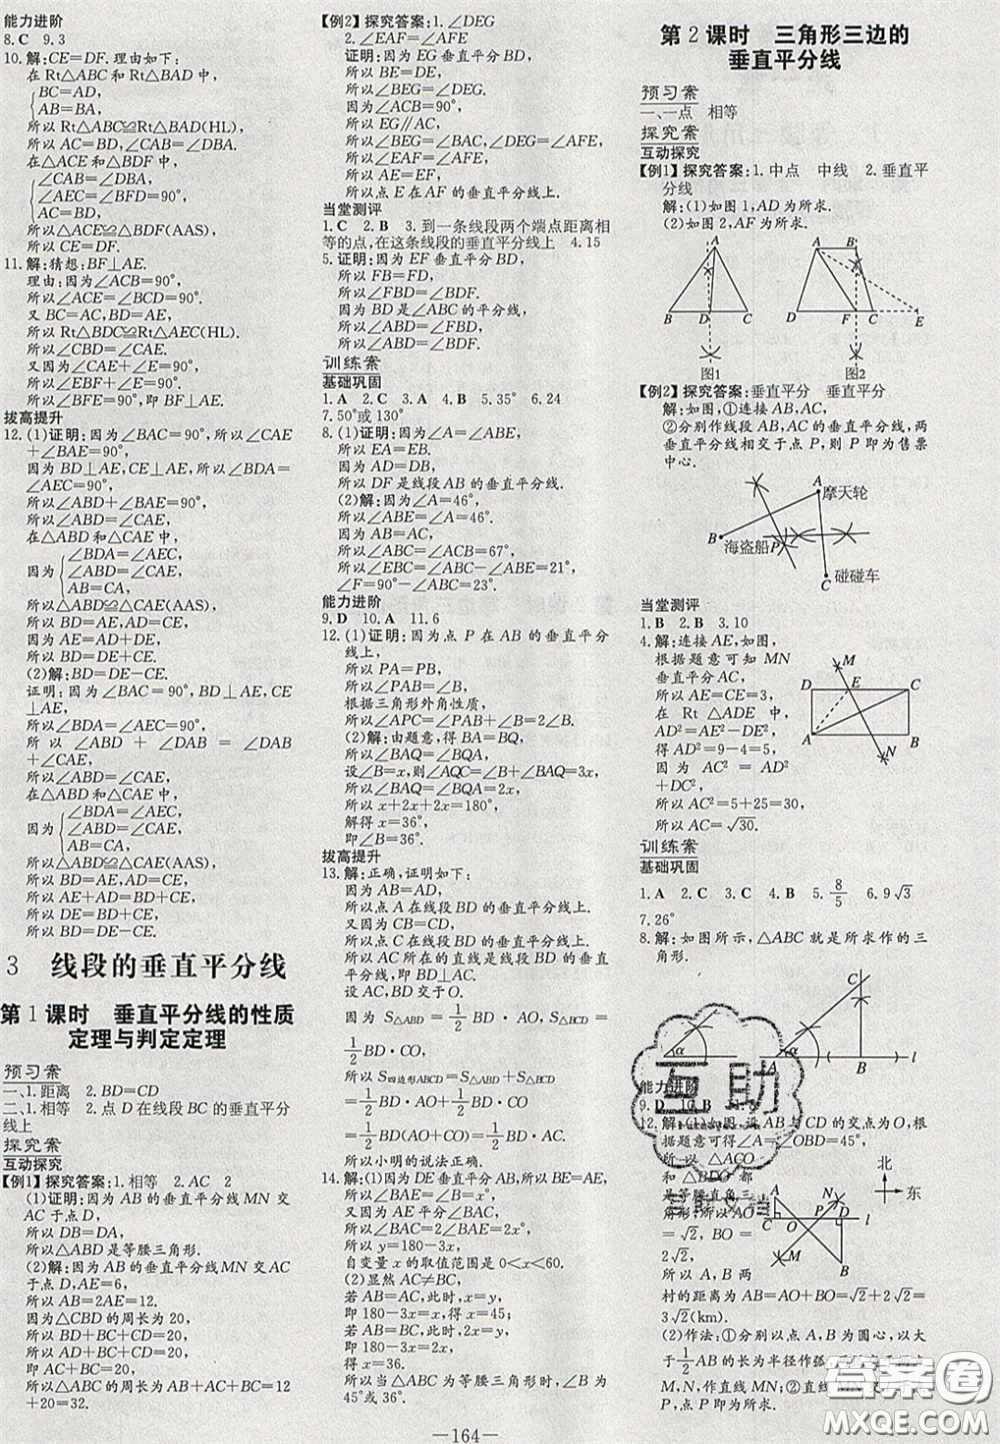 能力进阶
8.C 9.3
10.解:CE=DF.理由如下:
在Rt△ABC和Rt△BAD中,
BC=AD,
AB=BA,
所以Rt△ABC≌Rt△BAD(HL).
所以AC=BD,∠CAB=∠DBA.
在△ACE和△BDF中,
∠CAB=∠DBA,
∠AEC=∠BFD=90°,
AC=BD,
所以△ACE≌△BDF(AAS).
所以CE=DF.
11.解:猜想:BF⊥AE.
理由:因为∠ACB=90°,
所以∠ACE=∠BCD=90°.
又BC=AC,BD=AE,
所以Rt△BDC≌Rt△AEC(HL).
所以∠CBD=∠CAE.
又因为∠CAE+∠E=90°,
所以∠EBF+∠E=90°.
所以∠BFE=90°,即BF⊥AE.
拔高提升
12.(1)证明:因为∠BAC=90°,所以∠CAE
+∠BAE=90°.
因为BD⊥AE,CE⊥AE,所以∠BDA=
∠AEC=90°.
所以∠ABD+∠BAE=90°.
所以∠ABD=∠CAE.
在△ABD和△CAE中,
因为
∠BDA=∠AEC,
∠ABD=∠CAE,
AB=CA,
所以△ABD≌△CAE(AAS).
所以BD=AE,AD=CE.
因为AE=AD+DE,
所以BD=DE+CE.
(2)解:BD=DE-CE.
证明:因为∠BAC=90°,BD⊥AE,CE⊥
AE,
所以∠BDA=∠AEC=90°.
所以∠ABD+∠DAB=∠DAB
+∠CAE,
所以∠ABD=∠CAE.
在△ABD和△CAE中,
因为
∠BDA=∠AEC,
∠ABD=∠CAE,
AB=CA,
所以△ABD≌△CAE(AAS).
所以BD=AE,AD=CE.
所以AE+AD=BD+CE,
所以DE=BD+CE,
所以BD=DE-CE.
3 线段的垂直平分线
第1课时 垂直平分线的性质
定理与判定定理
预习案
一、1.距离 2.BD=CD
二、1.相等 2.点D在线段BC的垂直平分
线上
探究案
互动探究
【例1】探究答案:1.相等 2.AC 2
(1)证明:因为AB的垂直平分线MN交
AC于点D,
所以DB=DA,
所以△ABD是等腰三角形.
(2)解:因为AB的垂直平分线MN交AC
于点D,AE=6,
所以AB=2AE=12.
因为△CBD的周长为20,
所以BD+BC+CD=20,
所以AD+BC+CD=20,
即AC+BC=20,
所以△ABC的周长为AB+AC+BC=12
+20=32.
【例2】探究答案:1.∠DEG
2.∠EAF=∠AFE
证明:因为点E在BD的垂直平分线上,
所以BE=DE,
所以∠BEG=∠DEG.
因为∠ACB=90°,
所以EG∥AC,
所以∠BEG=∠BAC,∠DEG=∠AFE,
所以∠EAF=∠AFE,
所以AE=EF,
所以点E在AF的垂直平分线上.
当堂测评
1.C 2.B 3.到一条线段两个端点距离相
等的点,在这条线段的垂直平分线上 4.15
5.证明:因为EF垂直平分BD,
所以FB=FD,
所以∠FBD=∠BDF.
因为BD是∠ABC的平分线,
所以∠ABD=∠FBD,
所以∠ABD=∠BDF.
训练案
基础巩固
1.A 2.C 3.A 4.B 5.35° 6.24
7.50°或130°
8.(1)证明:因为∠A=∠ABE,
所以EA=EB.
因为AD=DB,
所以DF是线段AB的垂直平分线.
(2)解:因为∠A=46°,
所以∠ABE=∠A=46°.
因为AB=AC,
所以∠ABC=∠ACB=67°,
所以∠EBC=∠ABC-∠ABE=21°,
∠F=90°-∠ABC=23°.
能力进阶
9.D 10.A 11.6
12.(1)证明:因为点P在AB的垂直平分
线上,
所以PA=PB,
所以∠PAB=∠B,
根据三角形外角性质,
所以∠APC=∠PAB+∠B=2∠B.
(2)解:由题意,得BA=BQ,
所以∠BAQ=∠BQA,
设∠B=x,则∠AQC=∠B+∠BAQ=3x,
所以∠BAQ=∠BQA=2x,
所以x+2x+2x=180°,
解得x=36°,
即∠B=36°.
拔高提升
13.解:正确,证明如下:
因为AB=AD,
所以点A在线段BD的垂直平分线上.
又因为CB=CD,
所以点C在线段BD的垂直平分线上.
所以AC所在的直线是线段BD的垂直
平分线.
设AC,BD交于O.
因为S△ABD=1/2BD·AO,S△BCD=
1/2BD·CO,
所以S四边形ABCD=S△ABD+S△BCD=
1/2BD·AO+1/2BD·CO
=1/2BD(AO+CO)=1/2BD·AC.
所以小明的说法正确.
14.解:(1)因为DE垂直平分AB,所以BE=AE,
所以∠BAE=∠B=x°,
因为AE平分∠BAC,
所以∠BAC=2∠BAE=2x°,
所以y=180-3x,
自变量x的取值范围是0<x<60.
(2)显然AC≠BC,
若AB=AC,此时,x=y,
即180-3x=x,得x=45;
若AB=BC,此时,2x=y,
即180-3x=2x,
得x=36.
所以当△ABC为等腰三角形时,∠B为
45°或36°.
第2课时 三角形三边的
垂直平分线
预习案
一、一点 相等
探究案
互动探究
【例1】探究答案:1.中点 中线 2.垂直平
分线
解:(1)如图1,AD为所求.
(2)如图2,AF为所求.
A
B D C
图1
A B
D F C E
图2
【例2】探究答案:垂直平分 垂直平分
解:如图,①连接AB,AC;
②分别作线段AB,AC的垂直平分线,两
垂直平分线相交于点P,则P即为售票
中心.
A 摩天轮
B 海盗船 P
C 碰碰车
当堂测评
1.B 2.B 3.10
4.解:连接AE,如图,
根据题意可知MN
垂直平分AC,
所以AE=CE=3,
在Rt△ADE中,
AD²=AE²-DE²,
得AD²=9-4=5,
因为AC²=AD²
+DC²,
所以AC²=5+25=30,
所以AC=√30.
M
D E C
A B
N
训练案
基础巩固
1.A 2.C 3.C 4.B 5.8/5 6.9√3
7.26°
8.解:如图所示,△ABC就是所求作的三
角形.
α
α
A B l
能力进阶
9.D 10.B
12.解:(1)如图,设AB与CD的交点为O,根
据题意可得∠A=∠OBD=45°,
所以△ACO
和△BDO都
是等腰直角三
角形,所以AO
=√2,BO=
2√2,
所以A,B两
村的距离为AB=AO+BO=√2+2√2=
3√2(km).
(2)作法:①分别以点A,B为圆心,以大
于1/2AB的长为半径作弧
M,N,作直线MN;②
北
东
A N
C O D l
M B
互助
答案圈
MXQE.COM
—164—